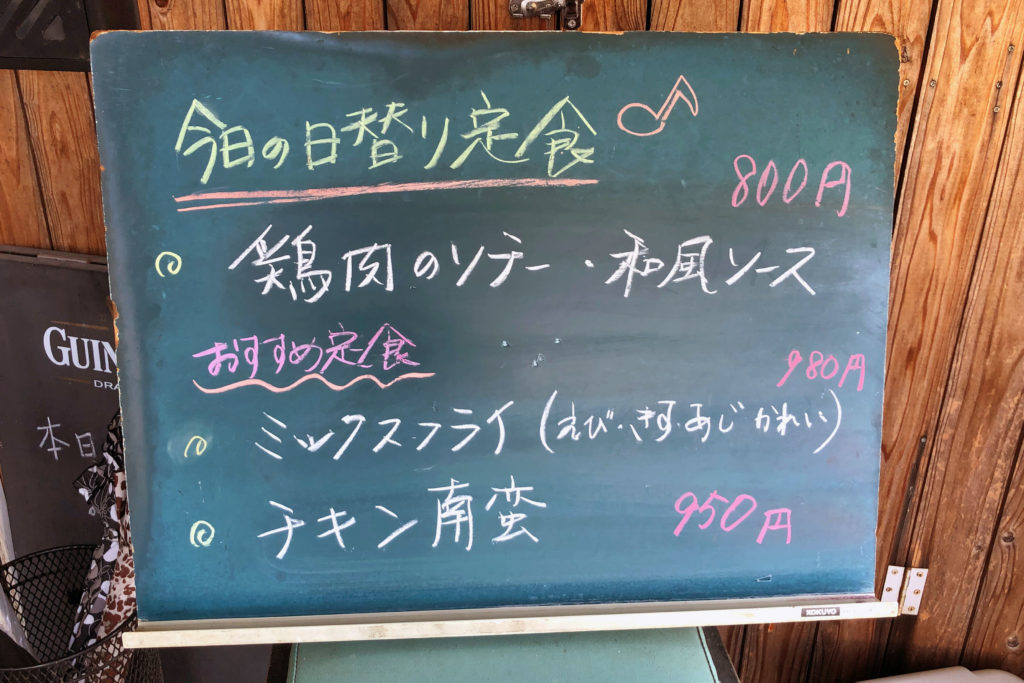 今日の日替り定食
800円
鶏肉のソテー・和風ソース
おすすめ定食
980円
ミックスフライ(えび・きす・あじ かれい)
チキン南蛮
950円
GUIN
DRA
本日
KOKUYO